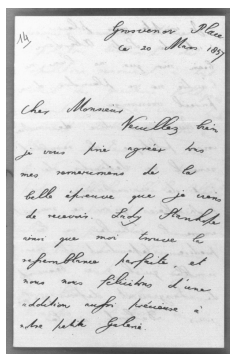 14
Grosvenor Place
ce 20 Mars 1857
Cher Monsieur
Veuillez bien
je vous prie agréer tous
mes remercimens de la
belle épreuve que je viens
de recevoir. Lady Stanhope
ainsi que moi trouve la
resemblance parfaite, et
nous nous félicitons d'une
addition aussi précieuse à
notre petite Galerie.